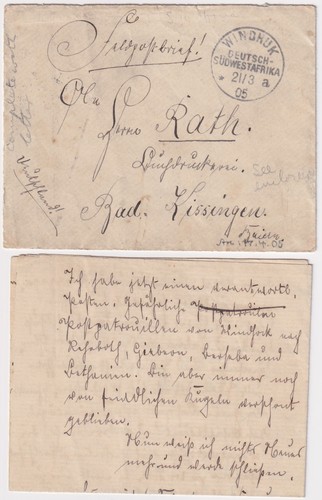 Feldpostbrief!
WINDHUK
DEUTSCH-
SÜDWESTAFRIKA
* 21/3 a
05
An
Herrn Rath.
Buchdruckerei.
Bad. Kissingen.
complete with
letter
See
Ank. 17.4.05
Ich habe jetzt einen verantwortl.
Posten, gefährliche
Postpatrouillen von Windhoek nach
Rehoboth, Gibeon, Berseba und
Bethanien. Bin aber immer noch
von feindlichen Kugeln verschont
geblieben.
Nun weiß ich nichts Neues
mehr und werde schließen.